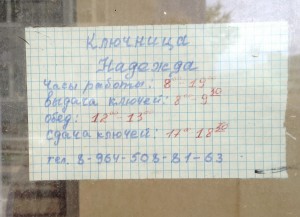 Ключница
Надежда
часы работы: 8⁰⁰-19⁰⁰
выдача ключей: 8⁰⁰-9³⁰
обед: 12⁰⁰-13⁰⁰
сдача ключей: 17⁰⁰-18³⁰
тел. 8-964-508-81-63